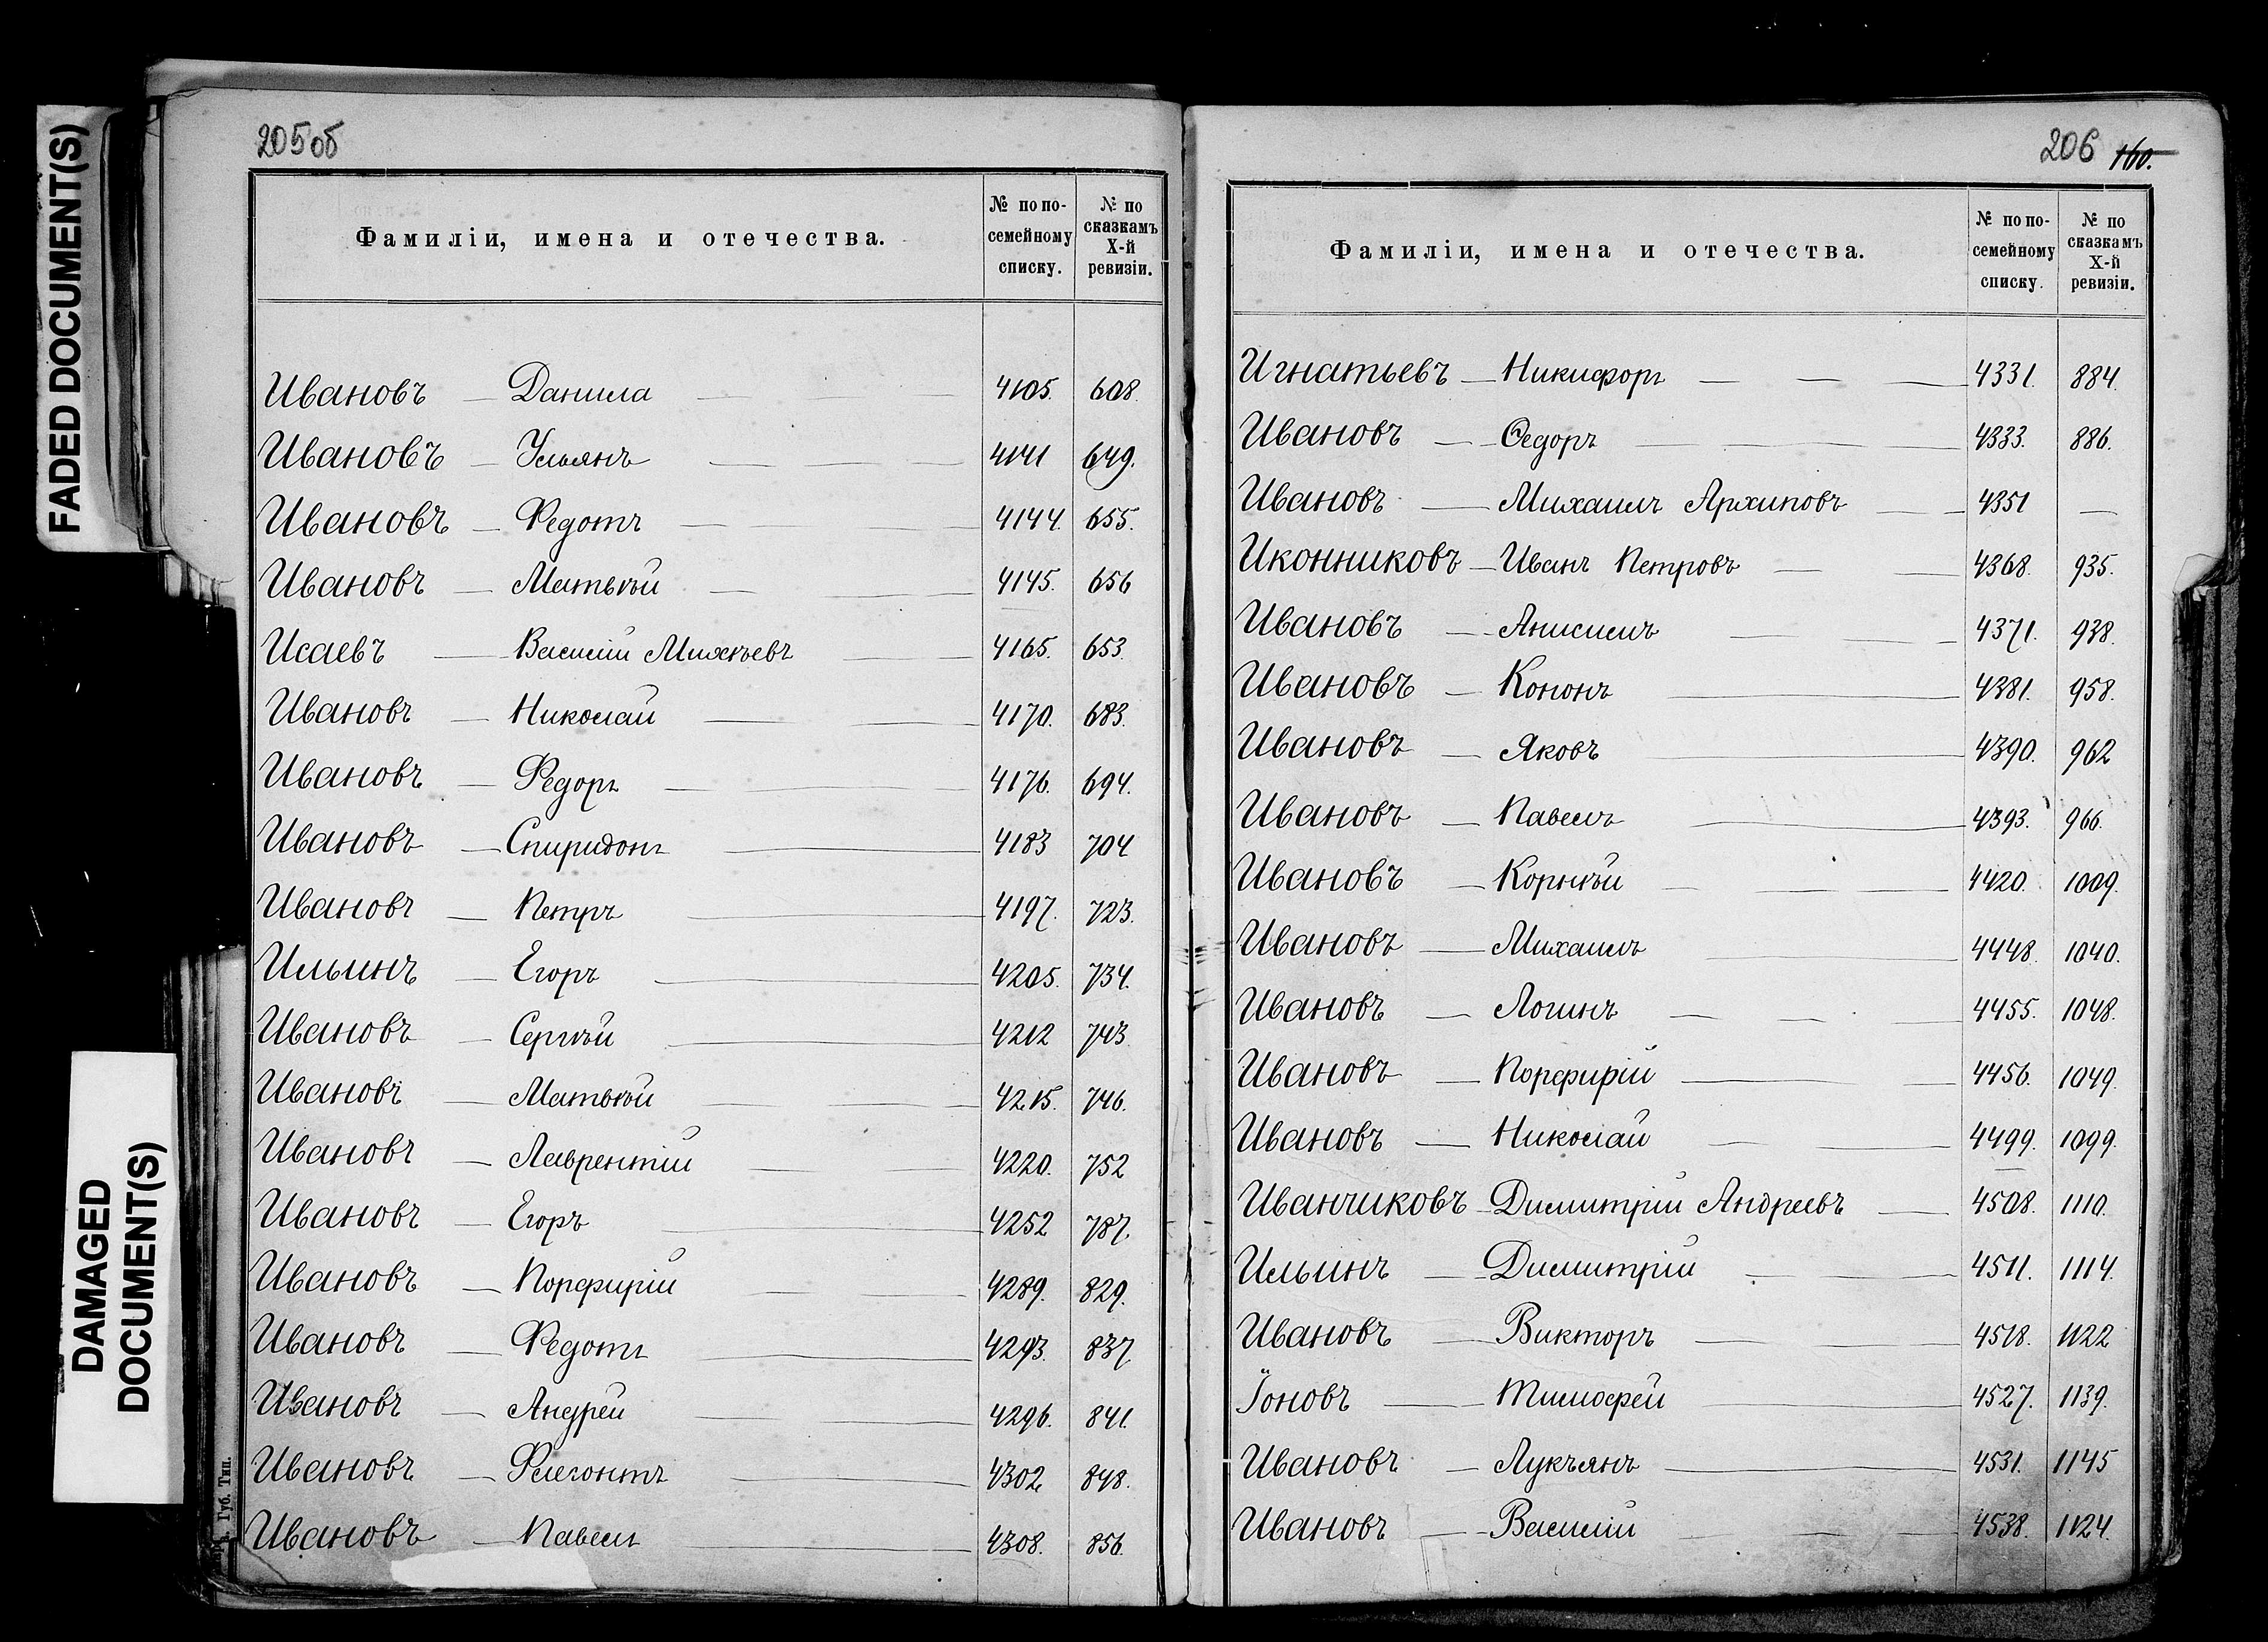 FADED DOCUMENT(S)
DAMAGED
DOCUMENT(S)
205об
Фамиліи, имена и отечества. № по посемейному списку. № по сказкамъ X-й ревизіи.
Ивановъ — Данила — 4105. 608.
Ивановъ — Ульянъ — 4141 649.
Ивановъ — Федотъ — 4144. 655.
Ивановъ — Матвѣй — 4145. 656
Исаевъ — Василій Михѣевъ — 4165. 653.
Ивановъ — Николай — 4170. 683.
Ивановъ — Федоръ — 4176. 694.
Ивановъ — Спиридонъ — 4183 704
Ивановъ — Петръ — 4197. 723.
Ильинъ — Егоръ — 4205. 734.
Ивановъ — Сергѣй — 4212 743
Ивановъ — Матвѣй — 4215. 746.
Ивановъ — Лаврентій — 4220. 752
Ивановъ — Егоръ — 4252 787.
Ивановъ — Порфирій — 4289. 829.
Ивановъ — Федотъ — 4293. 837
Ивановъ — Андрей — 4296. 841.
Ивановъ — Флегонтъ — 4302 848.
Ивановъ — Павелъ — 4308. 856.
Губ. Тип.
206 160.
Фамиліи, имена и отечества. № по посемейному списку. № по сказкамъ X-й ревизіи.
Игнатьевъ — Никифоръ — 4331. 884.
Ивановъ — Ѳедоръ — 4333. 886.
Ивановъ — Михаилъ Архиповъ — 4351 —
Иконниковъ — Иванъ Петровъ — 4368. 935.
Ивановъ — Анисимъ — 4371. 938.
Ивановъ — Кононъ — 4381. 958.
Ивановъ — Яковъ — 4390. 962
Ивановъ — Павелъ — 4393. 966.
Ивановъ — Корнѣй — 4420. 1009.
Ивановъ — Михаилъ — 4448. 1040.
Ивановъ — Логинъ — 4455. 1048.
Ивановъ — Порфирій — 4456. 1049.
Ивановъ — Николай — 4499. 1099.
Иванчиковъ — Димитрій Андреевъ — 4508. 1110.
Ильинъ — Димитрій — 4511. 1114.
Ивановъ — Викторъ — 4518. 1122
Їоновъ — Тимофей — 4527. 1139.
Ивановъ — Лукъянъ — 4531. 1145
Ивановъ — Василій — 4538. 1124.